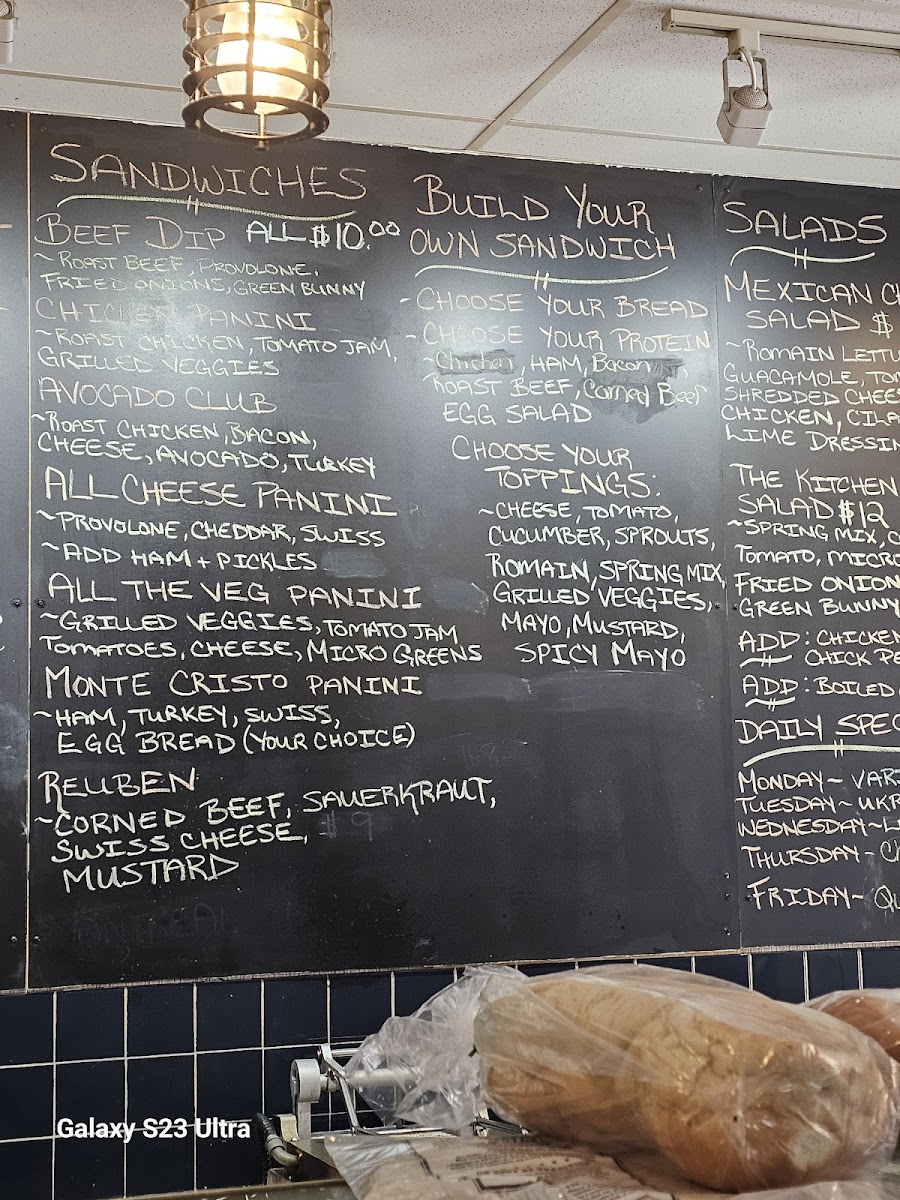 SANDWICHES
BEEF DIP ALL $10.00
~ROAST BEEF, PROVOLONE,
FRIED ONIONS, GREEN BUNNY
CHICKEN PANINI
~ROAST CHICKEN, TOMATO JAM,
GRILLED VEGGIES
AVOCADO CLUB
~ROAST CHICKEN, BACON,
CHEESE, AVOCADO, TURKEY
ALL CHEESE PANINI
~PROVOLONE, CHEDDAR, SWISS
~ADD HAM + PICKLES
ALL THE VEG PANINI
~GRILLED VEGGIES, TOMATO JAM
TOMATOES, CHEESE, MICRO GREENS
MONTE CRISTO PANINI
~HAM, TURKEY, SWISS,
EGG BREAD (YOUR CHOICE)
REUBEN
~CORNED BEEF, SAUERKRAUT,
SWISS CHEESE,
MUSTARD
BUILD YOUR
OWN SANDWICH
-CHOOSE YOUR BREAD
-CHOOSE YOUR PROTEIN
~Chicken, HAM, Bacon
ROAST BEEF, Corned Beef
EGG SALAD
CHOOSE YOUR
TOPPINGS:
~CHEESE, TOMATO,
CUCUMBER, SPROUTS,
ROMAIN, SPRING MIX,
GRILLED VEGGIES,
MAYO, MUSTARD,
SPICY MAYO
SALADS
MEXICAN CH
SALAD $
~ROMAIN LETTU
GUACAMOLE, TOM
SHREDDED CHEES
CHICKEN, CILA
LIME DRESSIN
THE KITCHEN
SALAD $12
~SPRING MIX, C
TOMATO, MICRO
FRIED ONION
GREEN BUNNY
ADD: CHICKEN
CHICK PE
ADD: BOILED
DAILY SPEC
MONDAY~ VARI
TUESDAY~ UKR
WEDNESDAY~ LI
THURSDAY- CH
FRIDAY~ QU
Galaxy S23 Ultra